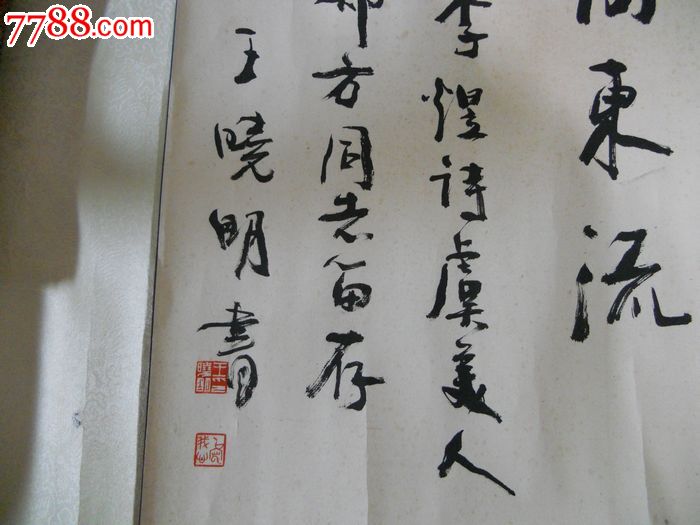 7788.com
向東流
李煜诗虞美人
方同志留存
王曉明書